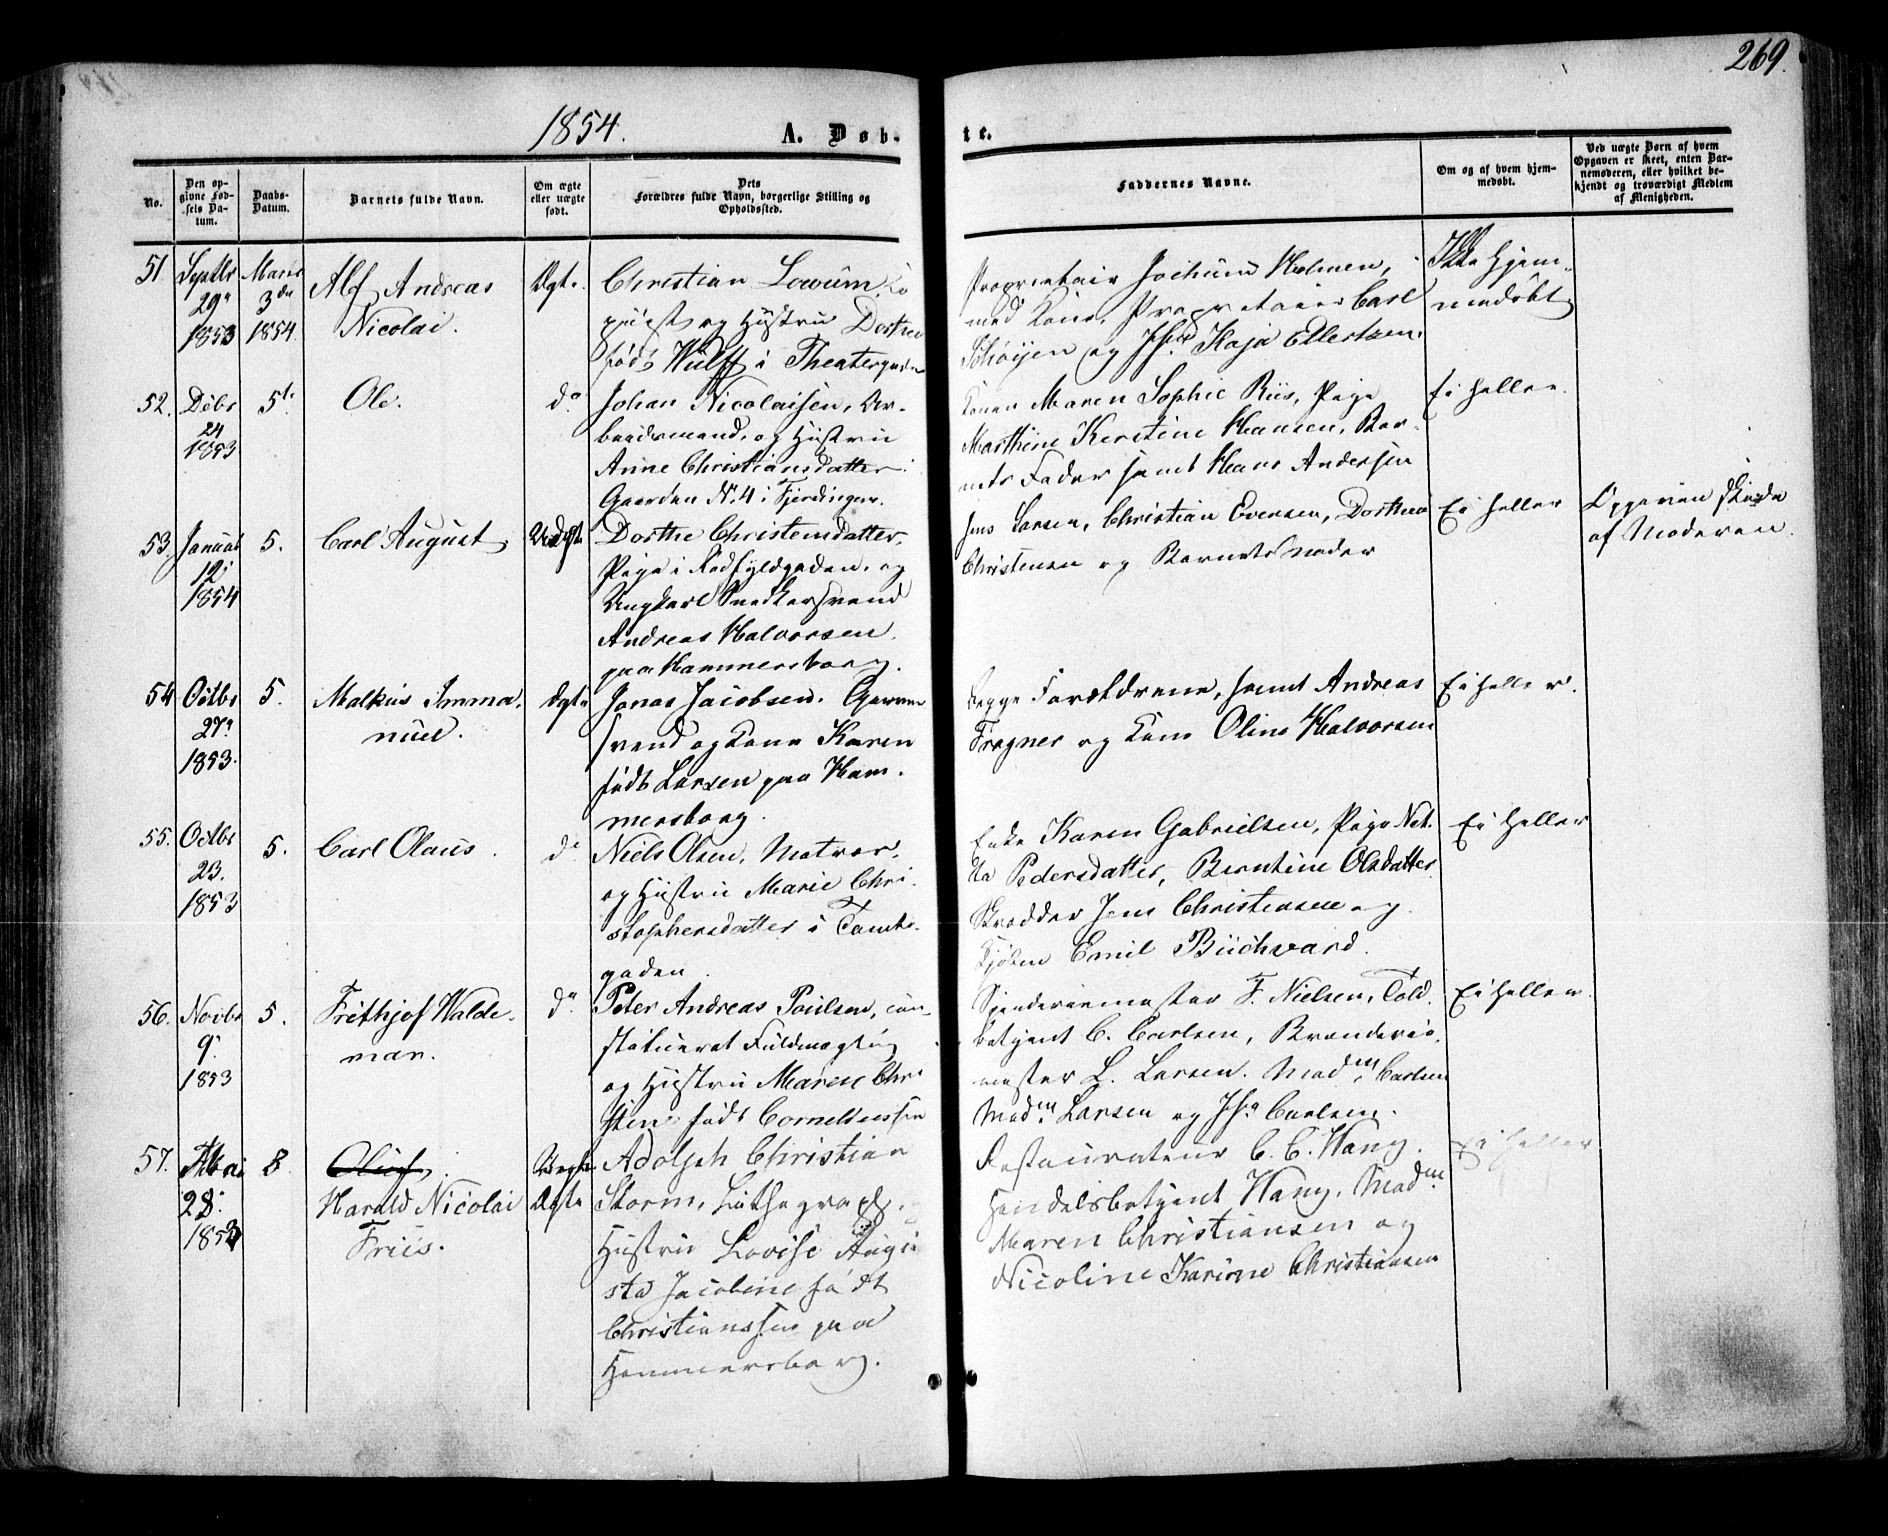 269.
1854. A. Døb- te.
No.
Den op-
givne Fød-
sels Da-
tum.
Daabs-
Datum.
Barnets fulde Navn.
Om ægte
eller uægte
født.
Dets
Forældres fulde Navn, borgerlige Stilling og
Opholdssted.
Faddernes Navne.
Om og af hvem hjem-
medøbt.
Ved uægte Børn af hvem
Opgaven er skeet, enten Bar-
nemoderen, eller hvilket be-
kjendt og troværdigt Medlem
af Menigheden.
51.
Septbr
29de
1853
Marts
3die
1854.
Alf Andreas
Nicolai.
Ægte.
Christian Lowum, Ko
piist og Hustru Dorthea
født Wulff i Theatergaden
Proprietair Jochum Holmen,
med Kone, Proprietairer Carl
Schøyen og Jfr. Kaja Ellertsen.
Ikke hjem-
medøbt
52.
Debr
24
1853
5te
Ole.
do
Johan Nicolaisen, Ar-
beidsmand, og Hustru
Anne Christiansdatter
Gaarden No. 4 i Fjerdingen.
Konen Maren Sophie Riis, Pige
Marthine Kirstine Hansen, Bar-
nets Fader samt Hans Andersen
Ei heller.
53.
Januar
12
1854
5.
Carl August
Uægte
Dorthe Christensdatter,
Pige i Rødfyldgaden, og
Ungkarl Snedkersvend
Andreas Halvorsen
paa Hammersborg.
Jens Larsen, Christian Evensen, Dorthea
Christensen og Barnets Moder
Ei heller
Opgaven skeede
af Moderen.
54
Octbr
27de
1853.
5.
Malkus Imma-
nuel.
Ægte
Jonas Jacobsen. Garver
svend og Kone Karen
født Larsen paa Ham-
mersborg.
Begge Forældrene, samt Andreas
Fragner og Kone Oline Halvorsen
Ei heller.
55.
Octbr
23.
1853
5.
Carl Olaus
do
Niels Olsen, Matros,
og Hustru Marie Chri-
stophersdatter i Tomte-
gaden
Enke Karen Gabrielsen, Pige Net-
ta Pedersdatter, Berntine Olsdatter
Skrædder Jens Christensen og
Emil Büchvard.
Ei heller
56.
Novbr
9.
1853
5.
Frithjof Walde-
mar.
do
Peter Andreas Poulsen, con-
stitueret Fuldmægtig
og Hustru Maren Chri
stine født Corneliussen
Spinderiemester F. Nielsen, Told-
betjent C. Carlsen, Brænderie-
mester L. Larsen. Madm. Carlsen
Madm. Larsen og Jfr. Carlsen.
Ei heller
57.
28.
8
Oluf
Harald Nicolai
Friis.
Uægte
Ægte
Adolph Christian
Storm, Lithograph.
Hustru Lovise Augu
sta Jacobine født
Christianssen paa
Hammersborg.
Restaurateur C. C. Hany.
Handelsbetjent Hany, Madm.
Maren Christiansen og
Nicoline Karine Christiansen
Ei heller